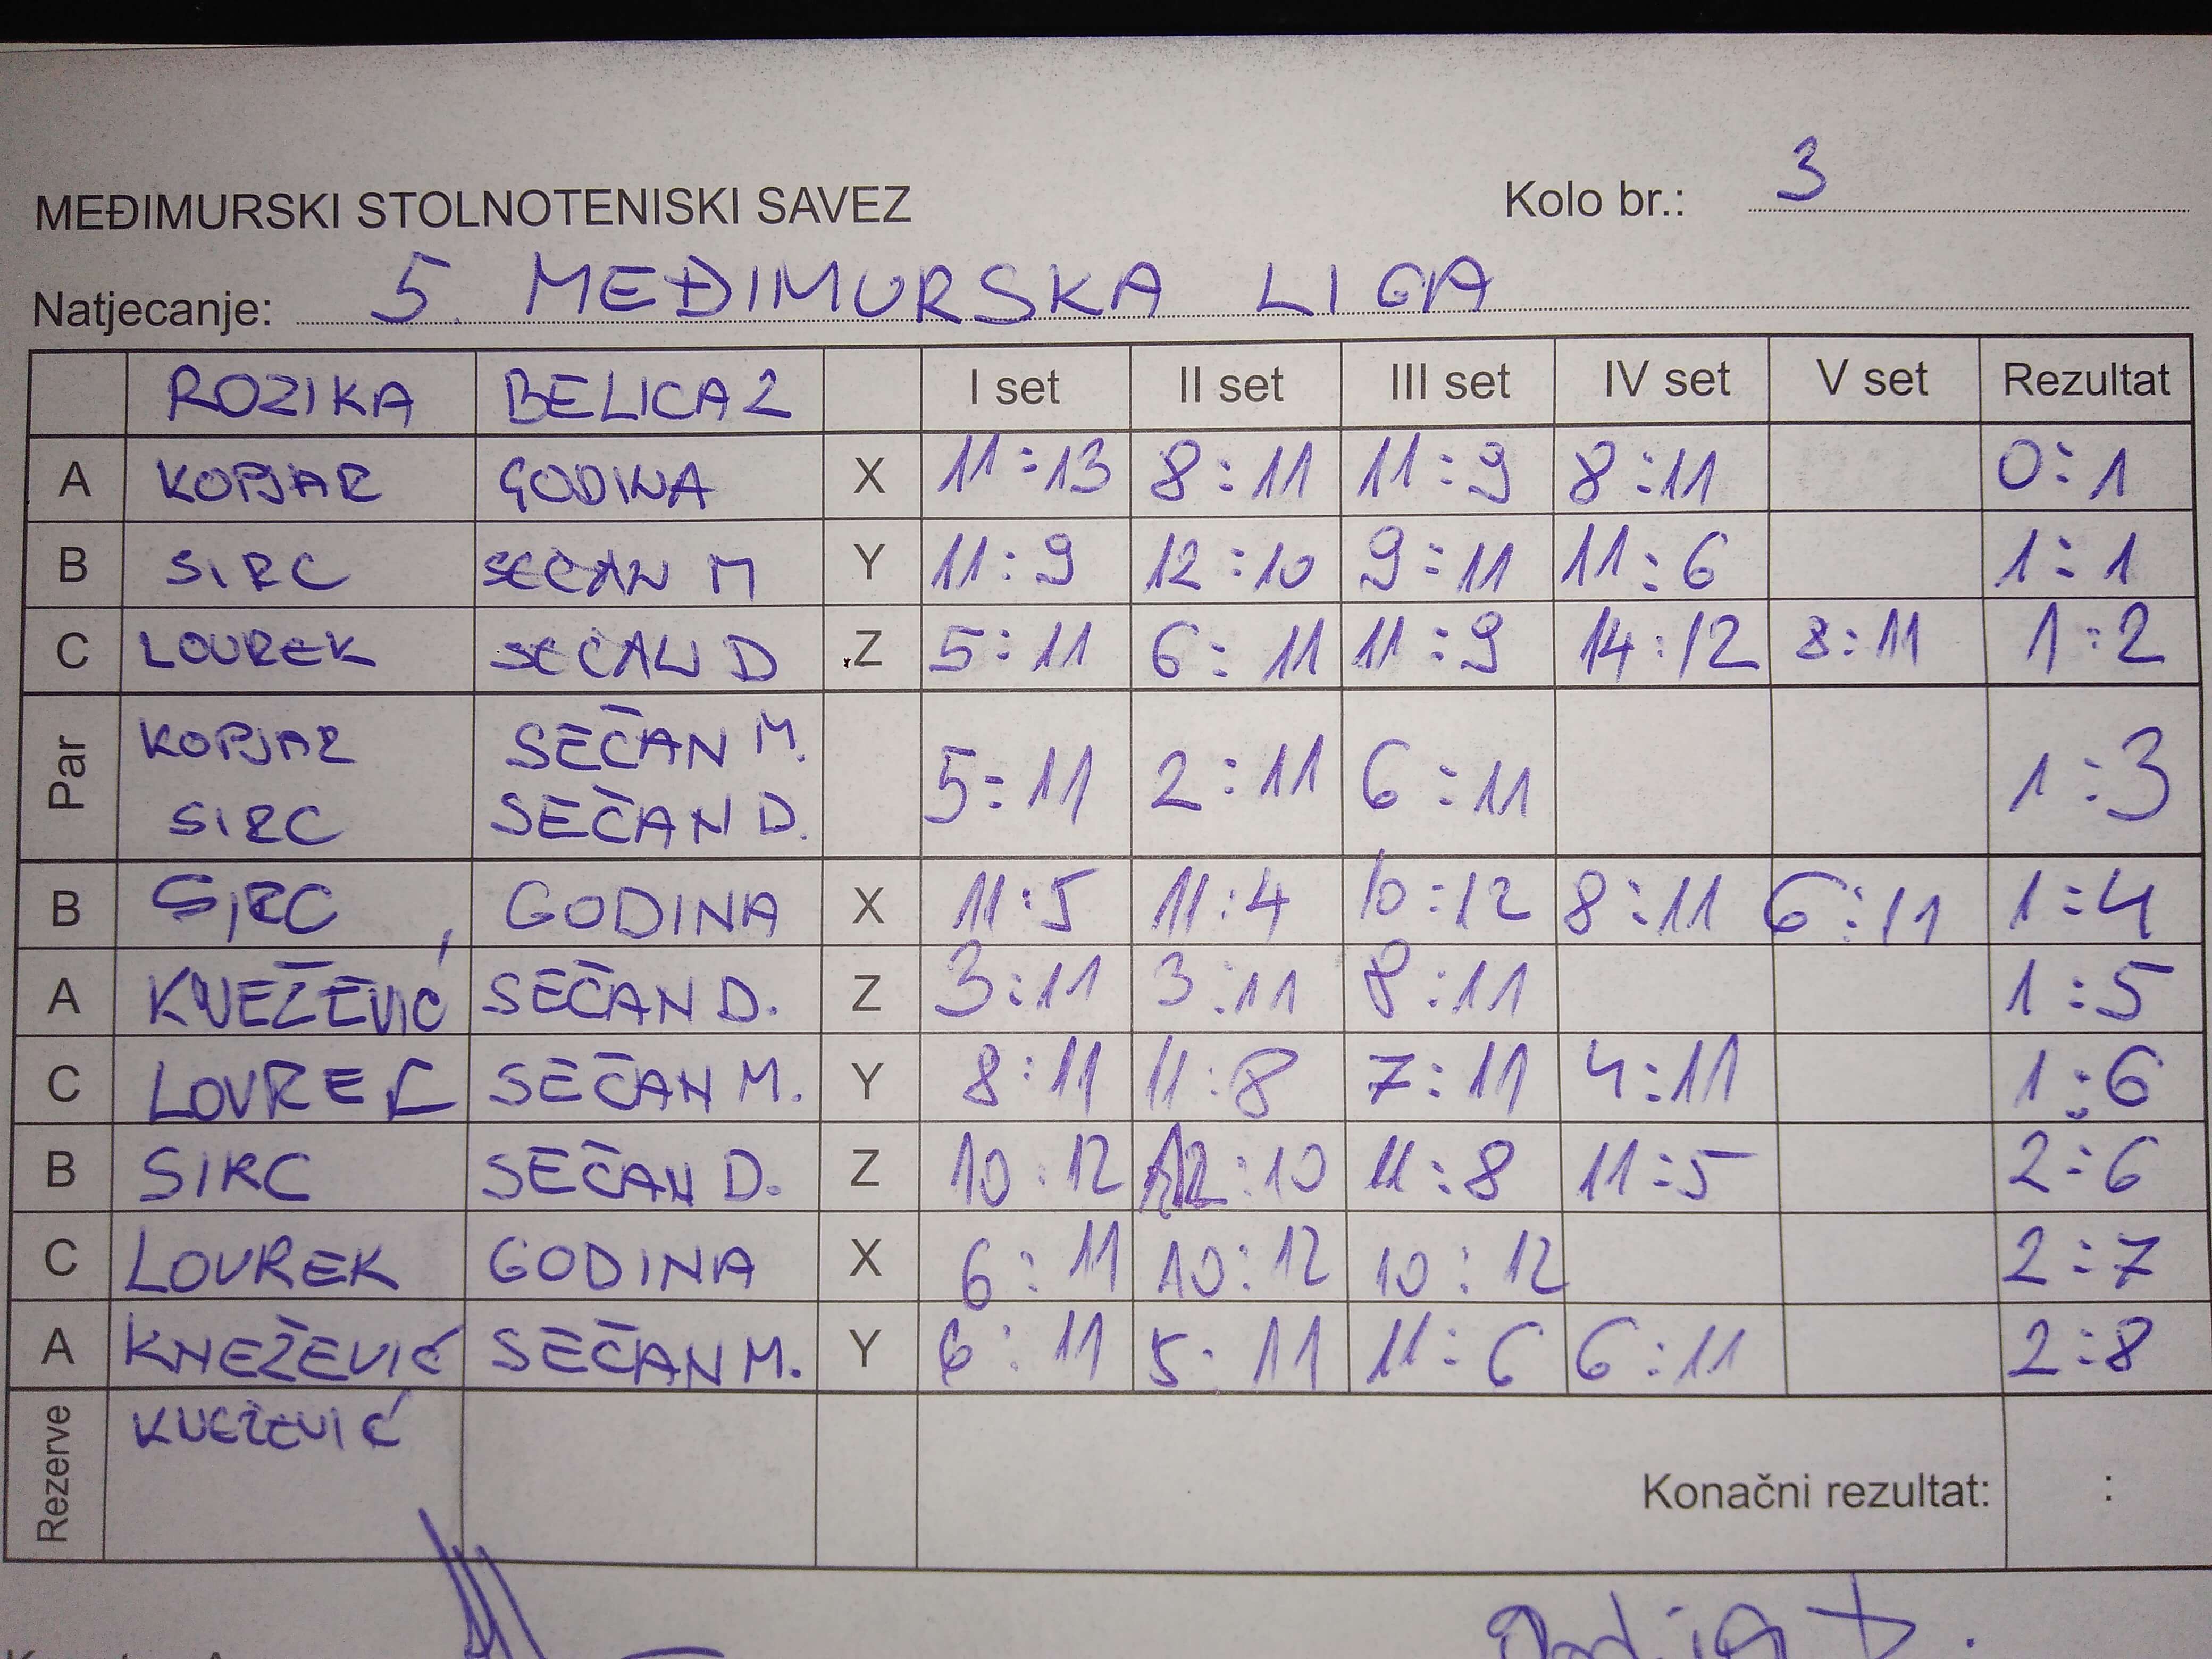 MEĐIMURSKI STOLNOTENISKI SAVEZ Kolo br.: 3
Natjecanje: 5. MEĐIMURSKA LIGA
ROZIKA BELICA 2 I set II set III set IV set V set Rezultat
A KOPJAR GODINA X 11:13 8:11 11:9 8:11 0:1
B SIRC SEČAN M Y 11:9 12:10 9:11 11:6 1:1
C LOVREK SEČAN D Z 5:11 6:11 11:9 14:12 8:11 1:2
Par KOPJAR SEČAN M. 5:11 2:11 6:11 1:3
SIRC SEČAN D.
B SIRC GODINA X 11:5 11:4 10:12 8:11 6:11 1:4
A KNEŽEVIĆ SEČAN D. Z 3:11 3:11 8:11 1:5
C LOVREK SEČAN M. Y 8:11 11:8 7:11 4:11 1:6
B SIRC SEČAN D. Z 10:12 12:10 11:8 11:5 2:6
C LOVREK GODINA X 6:11 10:12 10:12 2:7
A KNEŽEVIĆ SEČAN M. Y 6:11 5:11 11:6 6:11 2:8
Rezerve KNEŽEVIĆ
Konačni rezultat: :